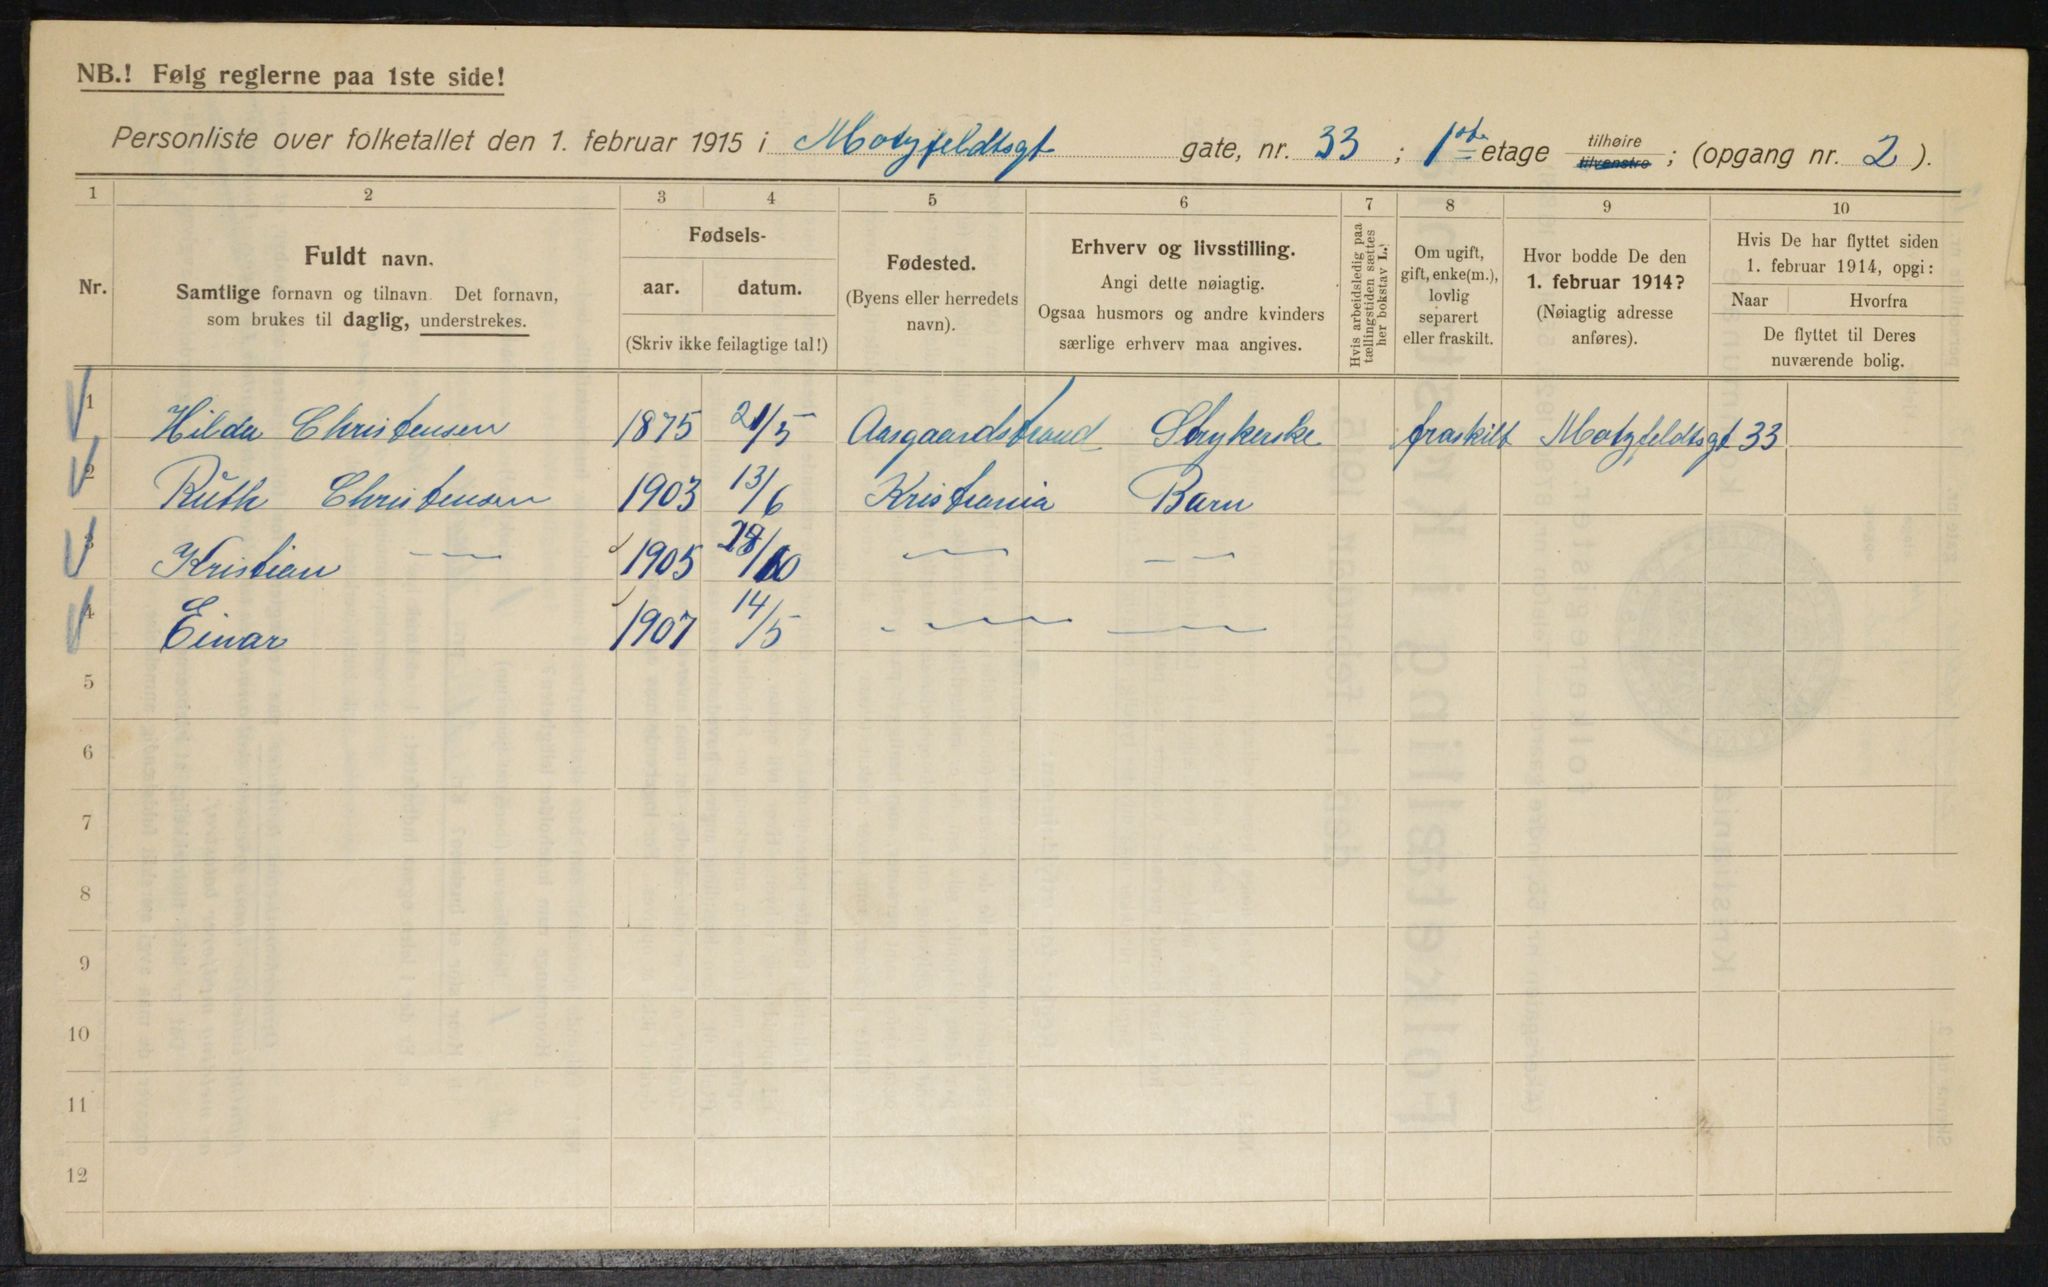 NB.! Følg reglerne paa 1ste side!
Personliste over folketallet den 1. februar 1915 i Motzfeldtsgt gate, nr. 33 ; 1ste etage tilhøire tilvenstre ; (opgang nr. 2 ).
1 2 3 4 5 6 7 8 9 10
Nr.
Fuldt navn.
Samtlige fornavn og tilnavn. Det fornavn,
som brukes til daglig, understrekes.
Fødsels-
aar. datum.
(Skriv ikke feilagtige tal!)
Fødested.
(Byens eller herredets
navn).
Erhverv og livsstilling.
Angi dette nøiagtig.
Ogsaa husmors og andre kvinders
særlige erhverv maa angives.
Hvis arbeidsledig paa
tællingstiden sættes
her bokstav L.
Om ugift,
gift, enke(m.),
lovlig
separert
eller fraskilt.
Hvor bodde De den
1. februar 1914?
(Nøiagtig adresse
anføres).
Hvis De har flyttet siden
1. februar 1914, opgi:
Naar Hvorfra
De flyttet til Deres
nuværende bolig.
1 Hilda Christensen 1875 21/5 Aasgaardstrand Strykerske fraskilt Motzfeldtsgt 33
2 Ruth Christensen 1903 13/6 Kristiania Barn
3 Kristian — — 1905 /10 — —
4 Einar 1907 14/5 — —
5
6
7
8
9
10
11
12